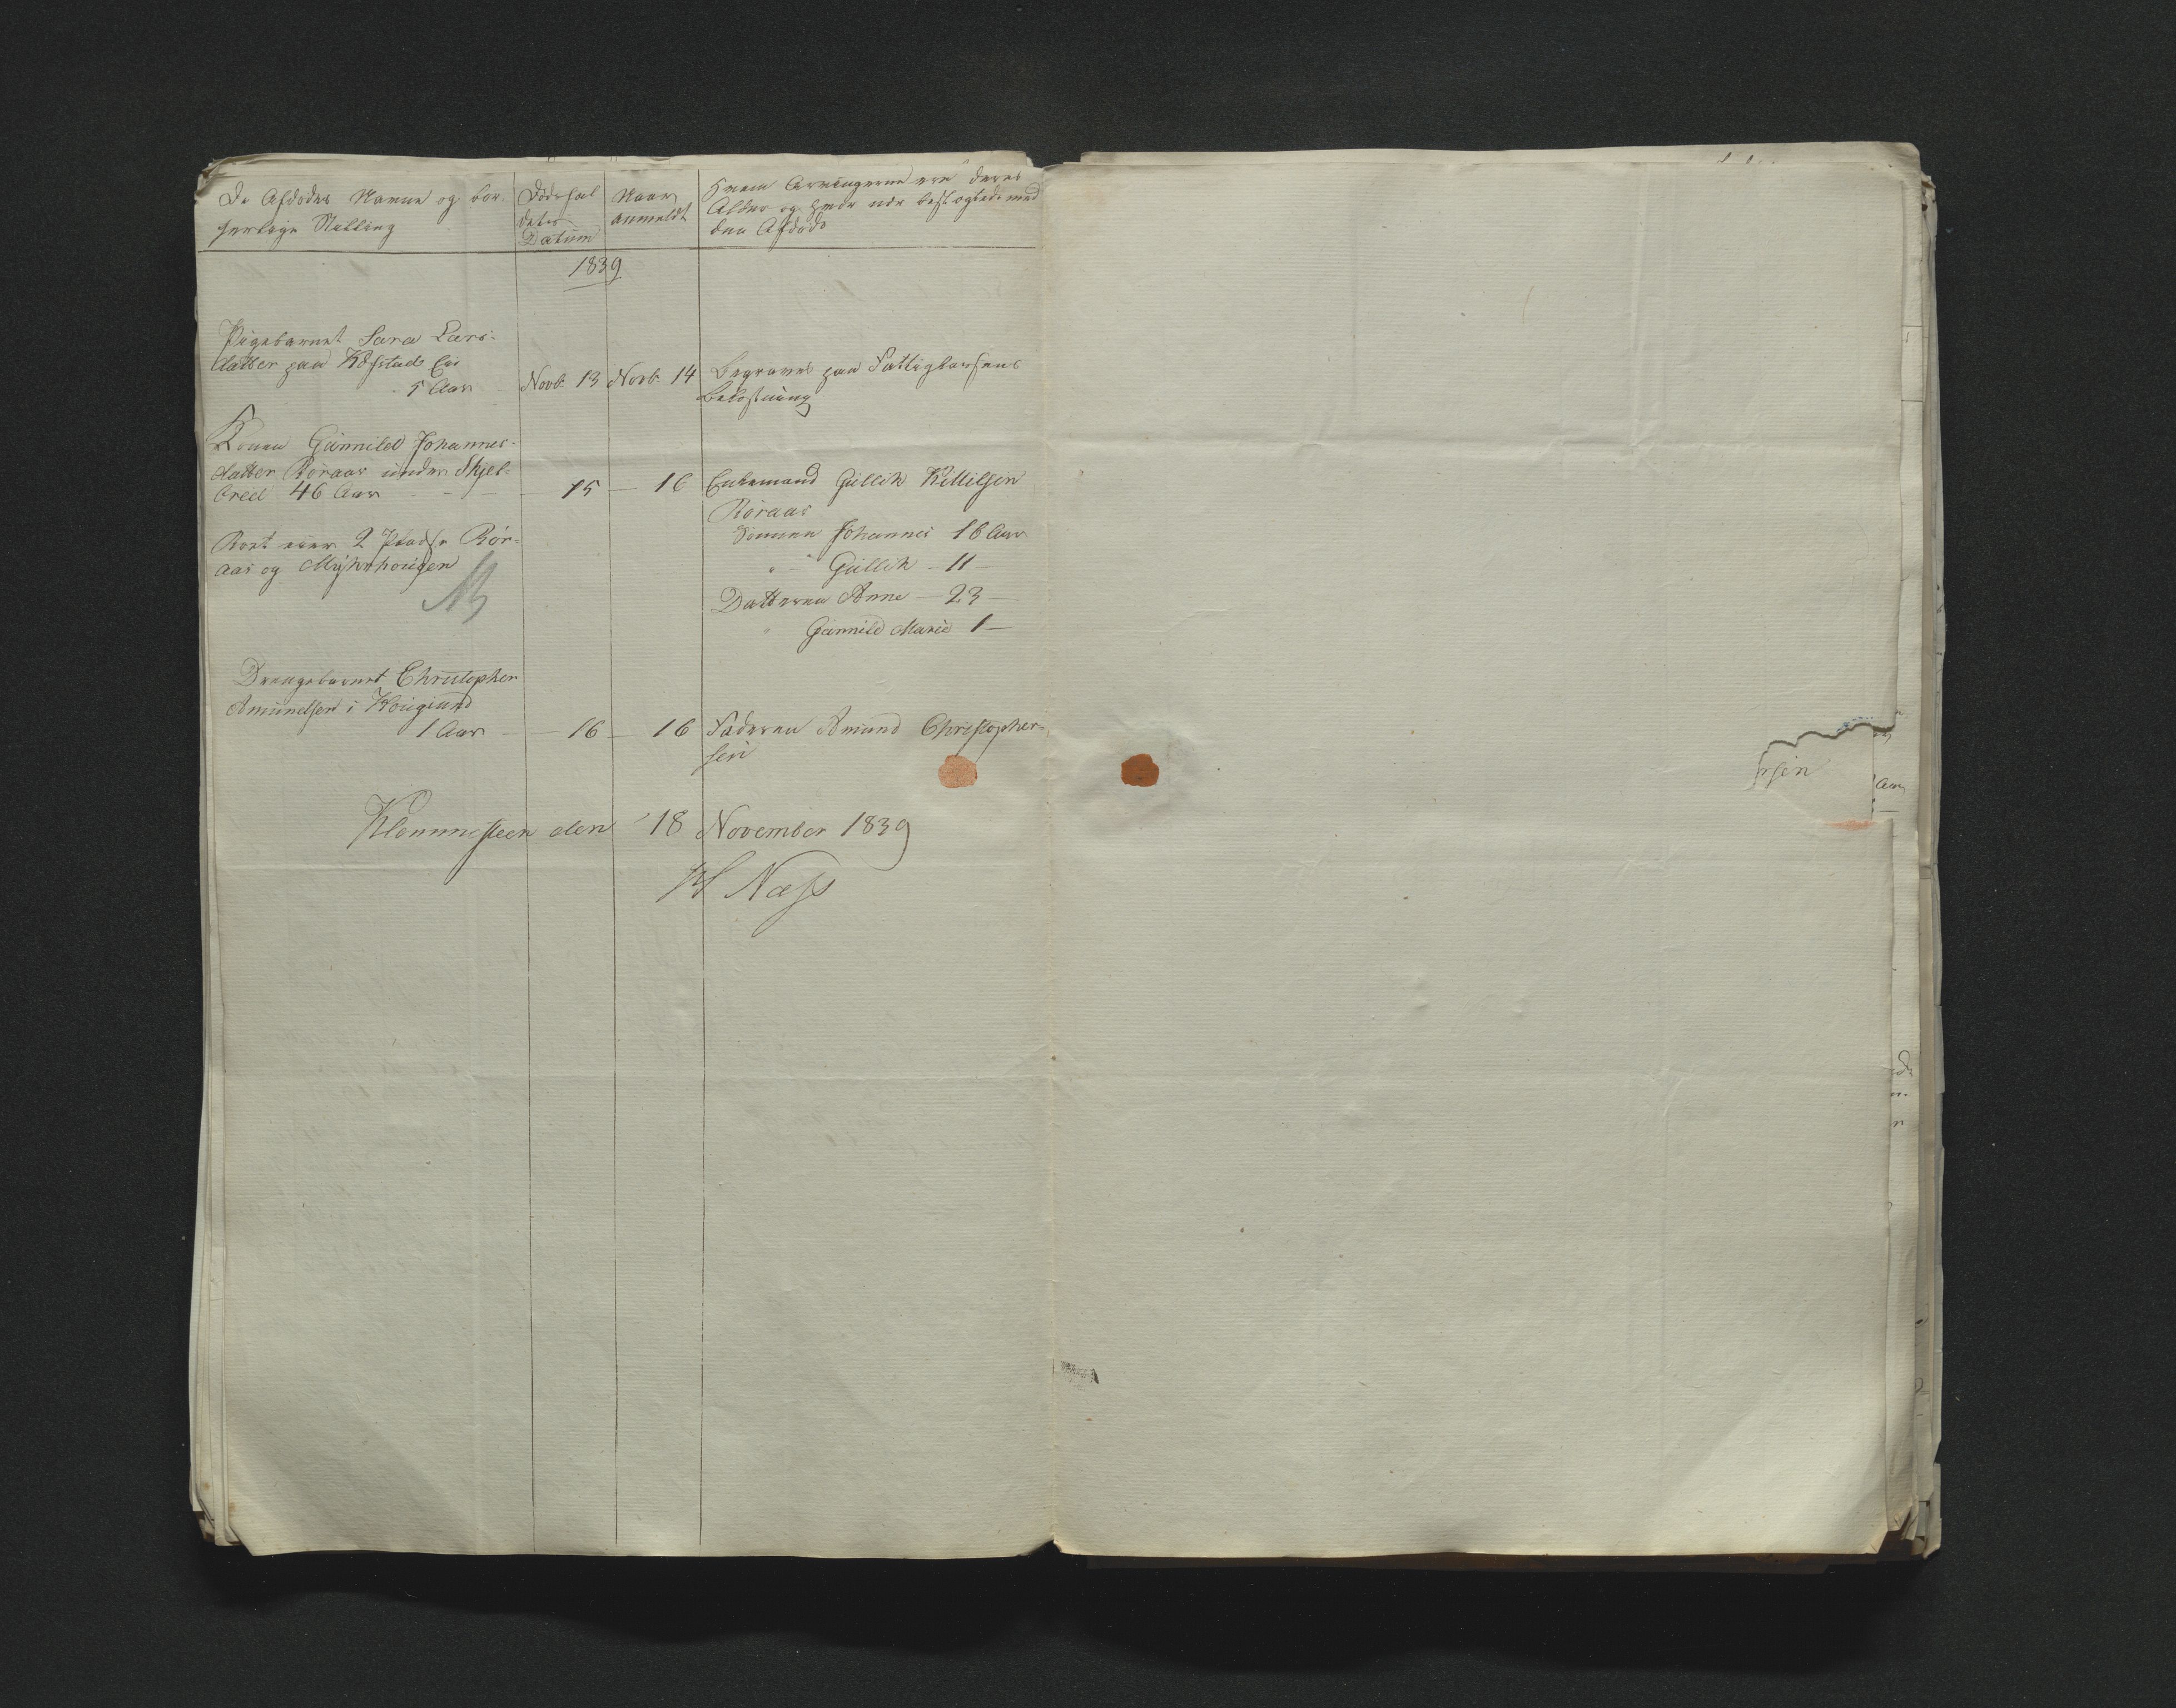 De Afdødes Navne og bor-
gerlige Stilling
Dødsfal
dets
Datum
Naar
anmeldt
Hvem Arvingerne ere deres
Alder og hvor nær beslægtede med
den Afdøde
1839
Pigebarnet Sara Lars-
datter paa Kofstad
5 Aar
Novb. 13
Novb. 14
Begraves paa Fattigkassens
Bekostning
Konen Gunnild Johannes-
datter Røraas under Skjel-
bred 46 Aar
15 — 16
Enkemand Gullik Kittilsen
Røraas
Sønnen Johannes 16 Aar
" Gullik - 11 -
Datteren Anne - 23 -
" Gunnild Marie 1 -
Boet eier 2 Pladse Rør-
aas og Myhrhougen
Drengebarnet Christopher
Amundsen i Hougsund
1 Aar - 16 - 16
Faderen Amund Christopher-
sen
Klommesteen den 18 November 1839
Næss
rsen
Aar